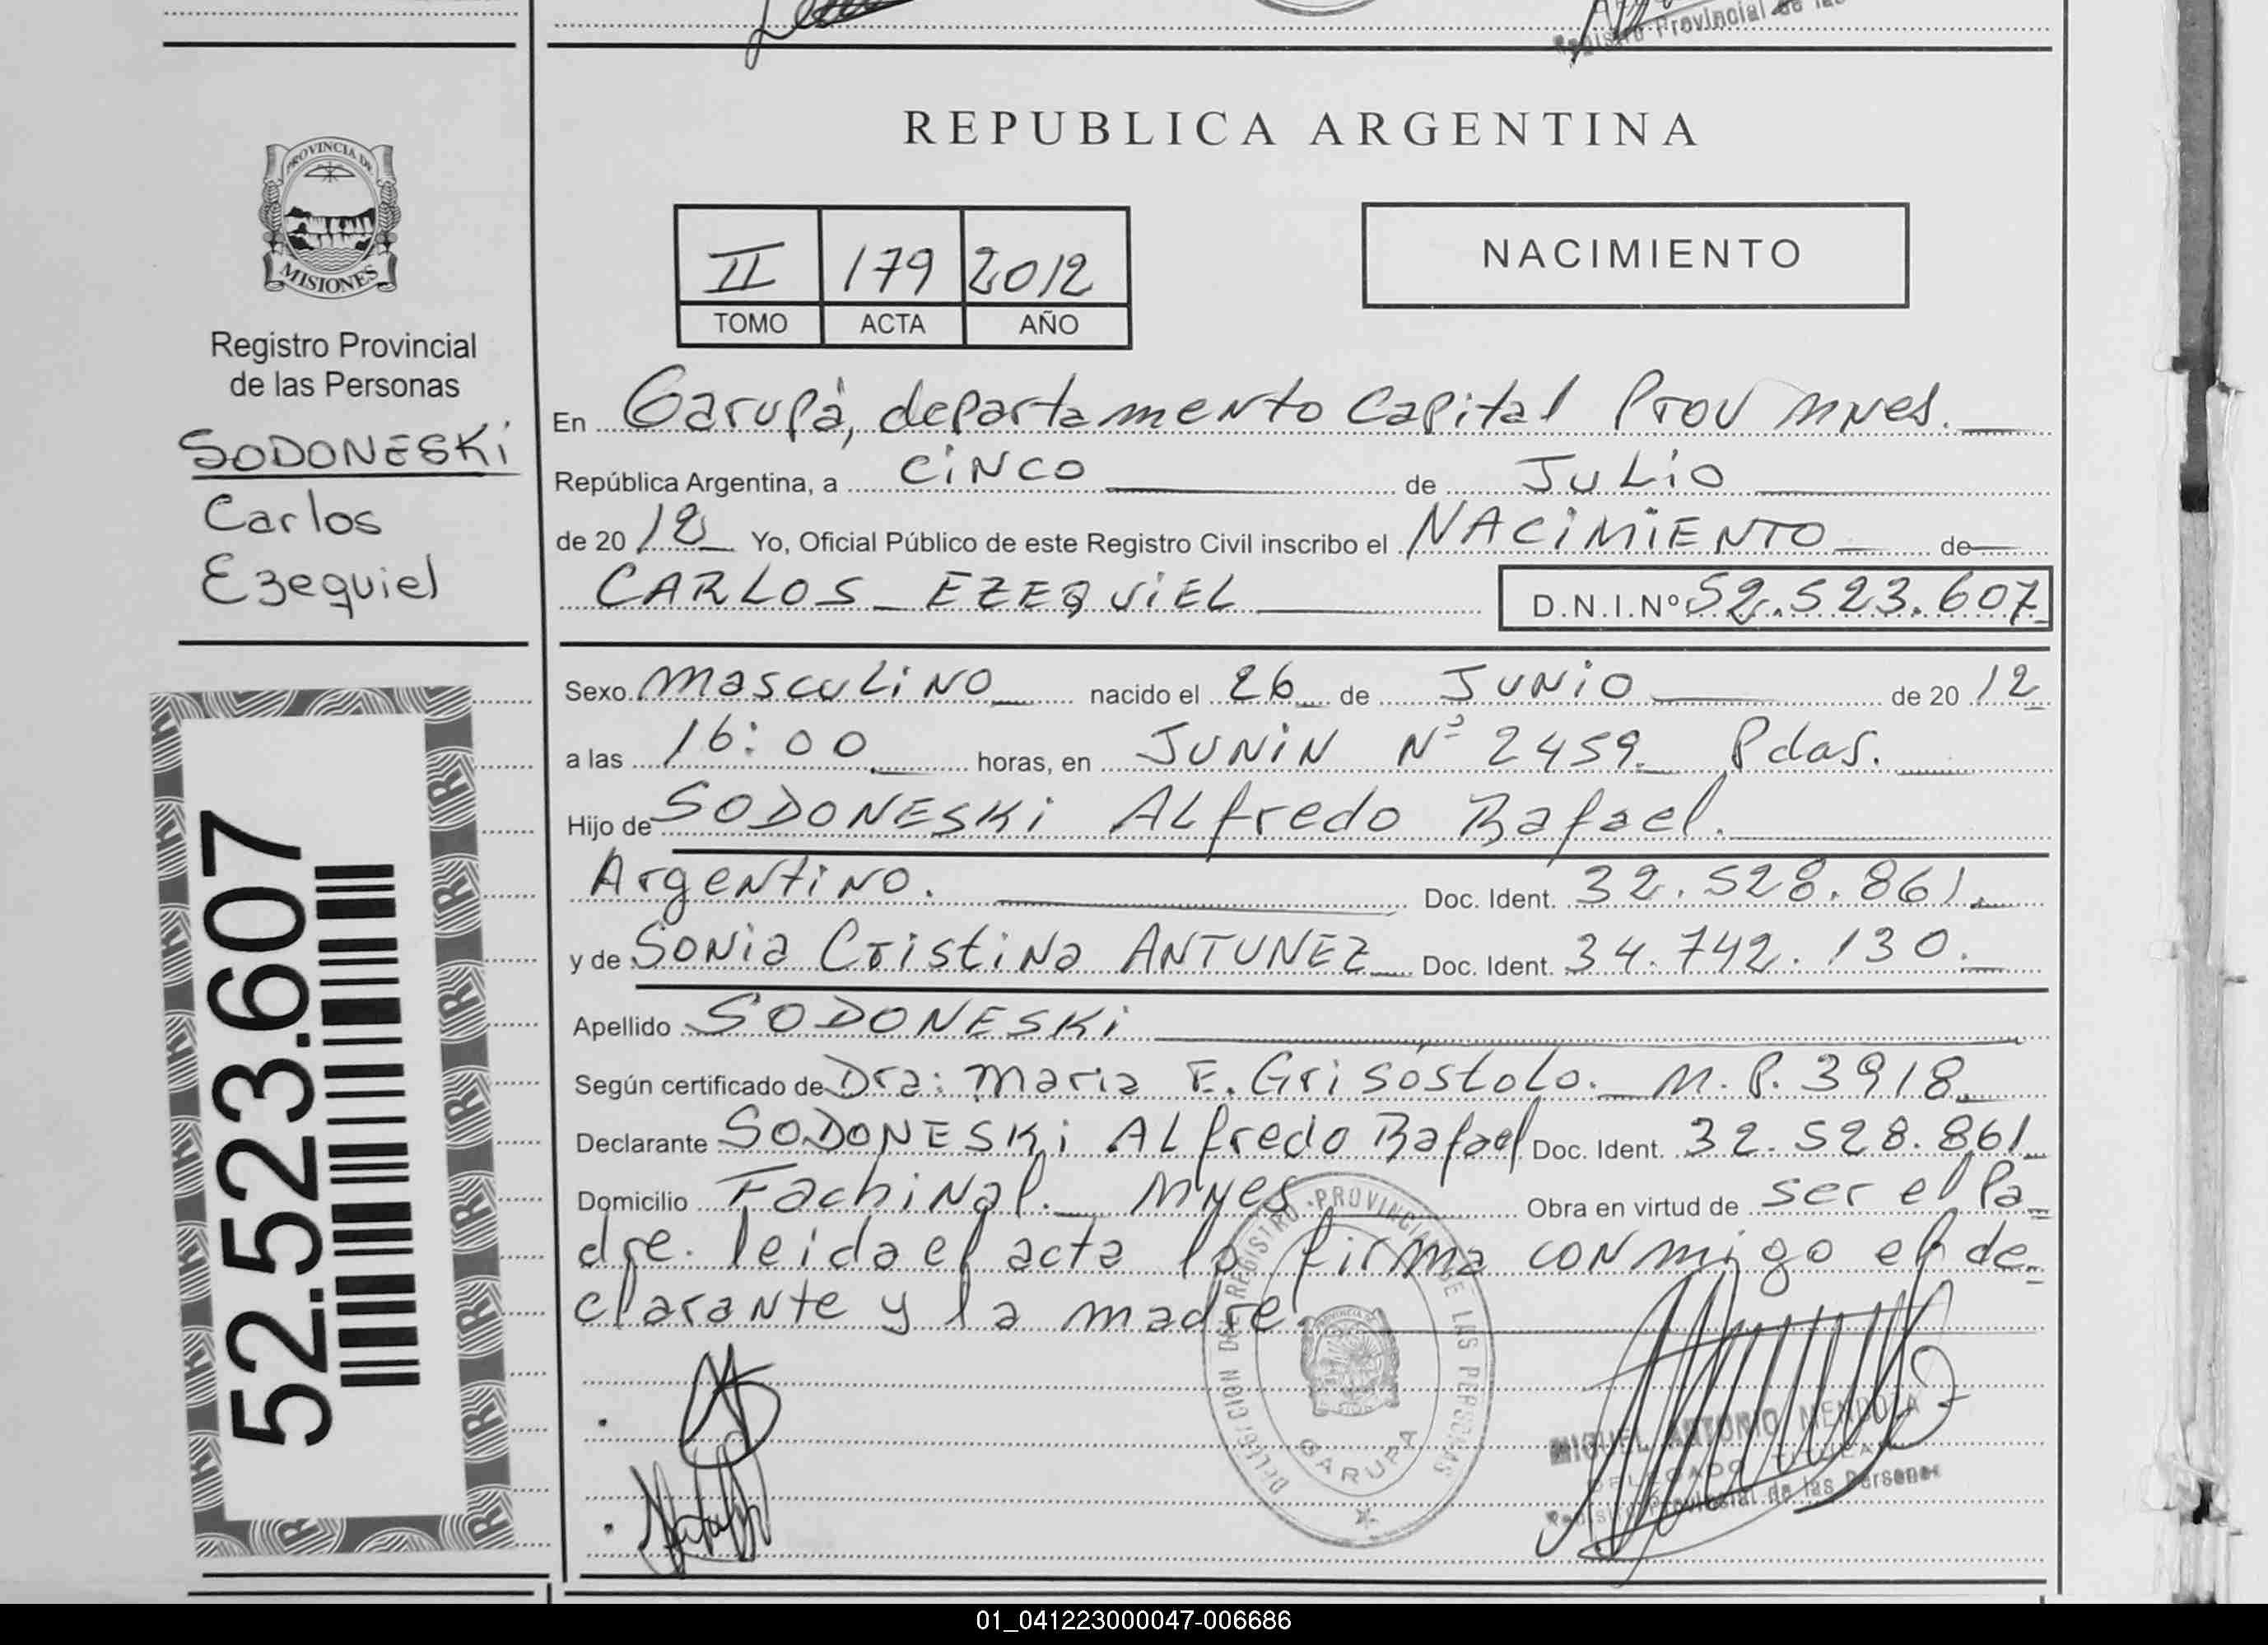 Registro Provincial de las
REPUBLICA ARGENTINA
PROVINCIA DE
MISIONES
Registro Provincial
de las Personas
SODONESKi
Carlos
Ezequiel
52.523.607
II 179 2012
TOMO ACTA AÑO
NACIMIENTO
En Garupá, departamento Capital Prov Mnes.
República Argentina, a CiNCO de JULiO
de 20 12 Yo, Oficial Público de este Registro Civil inscribo el NACiMiENTO de
CARLOS EZEQUiEL D.N.I.Nº 52.523.607
Sexo masculiNO nacido el 26 de JUNiO de 20 12
a las 16:00 horas, en JUNiN Nº 2459. Pdas.
Hijo de SODONESKi ALfredo Rafael.
ArgeNtiNO. Doc. Ident. 32.528.861.
y de SoNia CristiNa ANTUNEZ Doc. Ident. 34.742.130.
Apellido SODONESKi
Según certificado de Dra: Maria E. Grisóstolo. M.P. 3918
Declarante SODONESKi ALfredo Rafael Doc. Ident. 32.528.861
Domicilio FachiNal. Mnes Obra en virtud de ser el Pa
dre. leida el acta la firma coNmigo el de-
claraNte y la madre.
DELEGACION DEL REGISTRO PROVINCIAL DE LAS PERSONAS
GARUPA
MIGUEL ANTONIO MENDOZA
DELEGADO TITULAR
Registro Provincial de las Personas
01_041223000047-006686